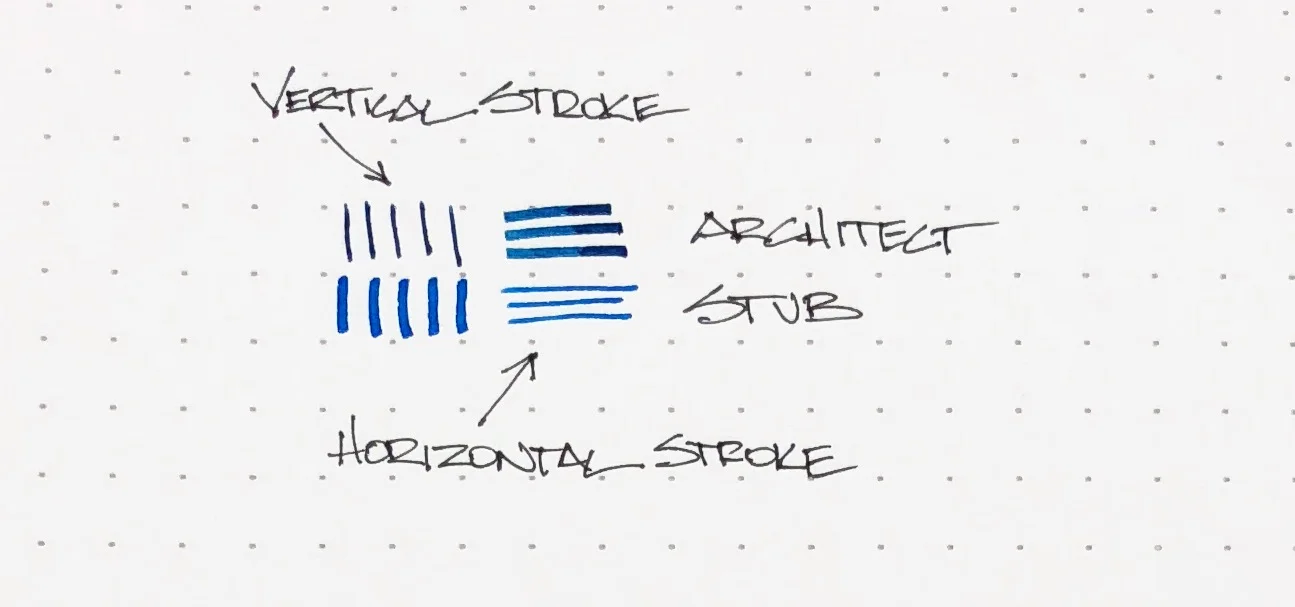 VERTICAL STROKE
ARCHITECT
STUB
HORIZONTAL STROKE